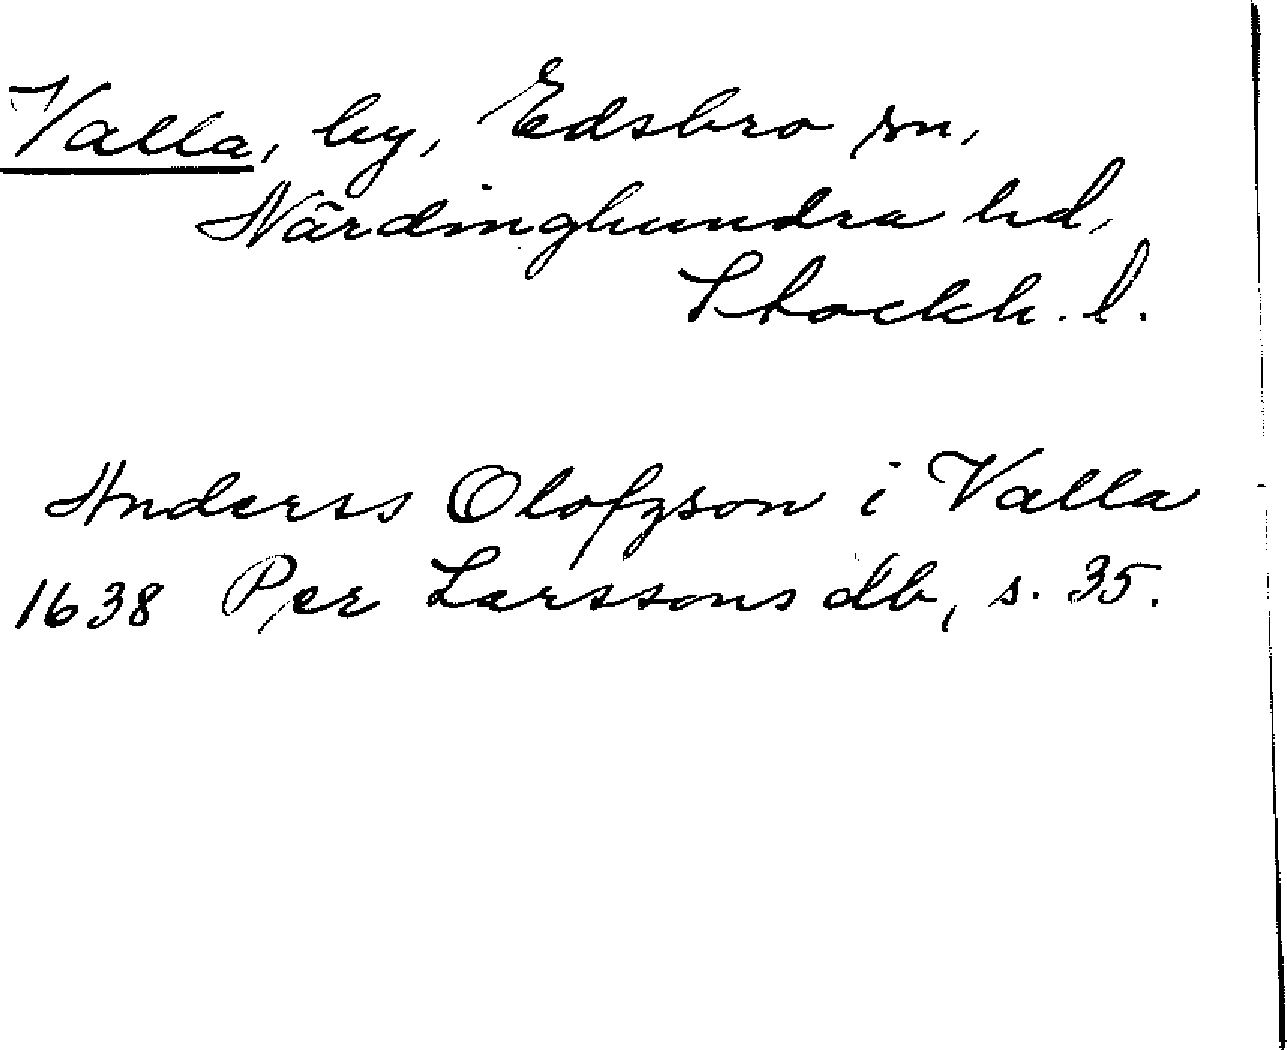 Valla, by, Edsbro sn,
Närdinghundra hd,
Stockh. l.
Anderss Olofzson i Valla
1638 Per Larssons db, s. 35.